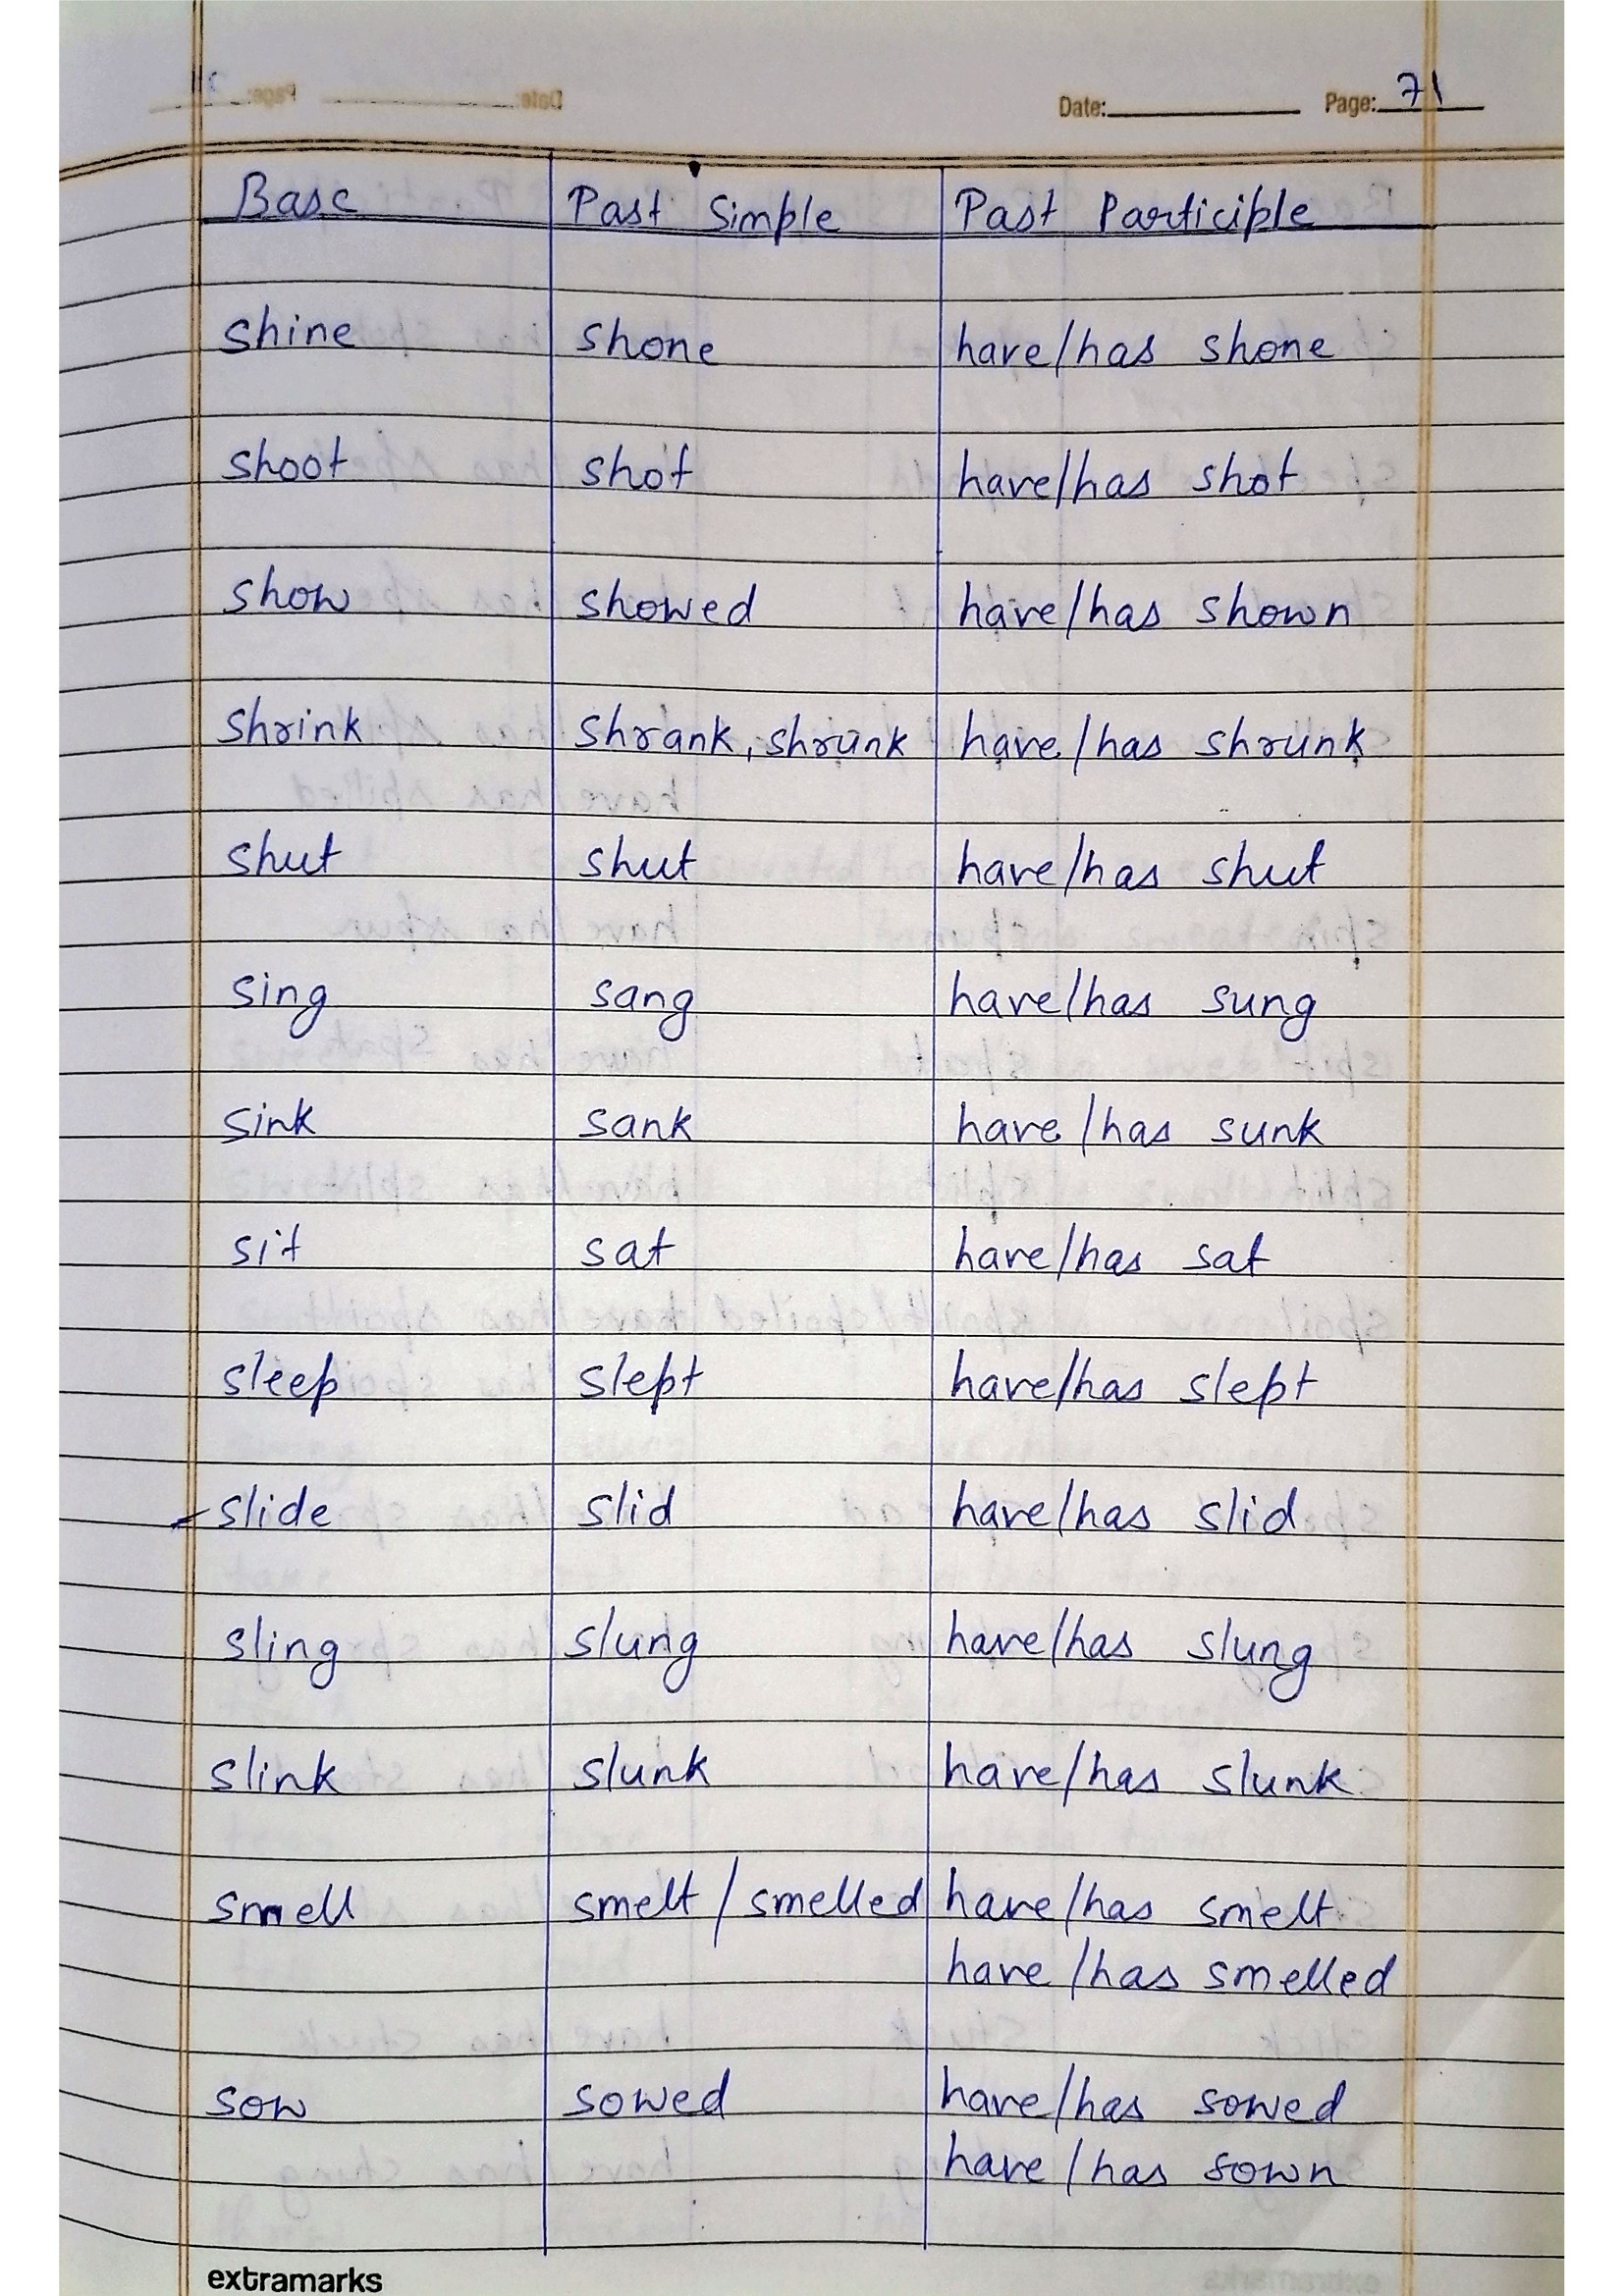 Date: Page: 71
Base Past Simple Past Participle
shine shone have/has shone
shoot shot have/has shot
show showed have/has shown
shrink shrank, shrunk have/has shrunk
shut shut have/has shut
sing sang have/has sung
sink sank have/has sunk
sit sat have/has sat
sleep slept have/has slept
slide slid have/has slid
sling slung have/has slung
slink slunk have/has slunk
smell smelt / smelled have/has smelt
have/has smelled
sow sowed have/has sowed
have/has sown
extramarks